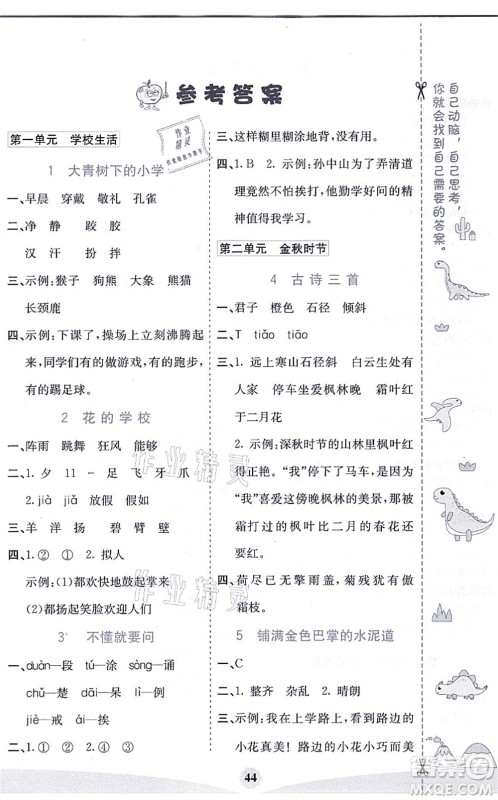 参考答案
第一单元 学校生活
1 大青树下的小学
一、早晨 穿戴 敬礼 孔雀
二、净 静 跤 胶
汉 汗 扮 拚
三、示例:猴子 狗熊 大象 熊猫
长颈鹿
四、示例:下课了，操场上立刻沸腾起
来，同学们有的做游戏，有的跑步，
有的踢足球。
2 花的学校
一、阵雨 跳舞 狂风 能够
二、1.夕 11 - 足 飞 牙 爪
2.jià jiǎ 放假 假如
三、羊 洋 扬 碧 臂 壁
四、1.① ① 2.拟人
示例:(1)都欢快地鼓起掌来
(2)都扬起笑脸欢迎我们
3* 不懂就要问
一、duàn—段 tú—涂 sòng—诵
chǔ—楚 dāi—呆 fá—罚
jiè—戒 jiē—楷
二、1.① 2.① 3.②
三、这样糊里糊涂地背，有什么用呢?
四、1.B 2.示例:孙中山为了弄清道
理竟然不怕挨打，他勤学好问的
精神值得我学习。
第二单元 金秋时节
4 古诗三首
一、君子 橙色 石径 倾斜
二、T tiǎo tiāo
三、1.远上寒山石径斜 白云生处有
人家 停车坐爱枫林晚 霜叶红
于二月花
2.示例:深秋时节的山林里枫叶红
得正艳。“我”停下了马车，是
因为“我”喜爱这傍晚枫林的美景，被
霜打过的枫叶比二月的春花还要
红。
四、荷尽已无擎雨盖，菊残犹有傲
霜枝。
5 铺满金色巴掌的水泥道
一、C
二、1.整齐 杂乱 2.晴朗
三、示例:我在上学路上，看到路边的
小花真美！路边的小花小巧而美
44
自己动脑，自己思考，
你就会找到自己需要的答案。
作业精灵
作业精灵
作业精灵
答案圈
MXQE.COM